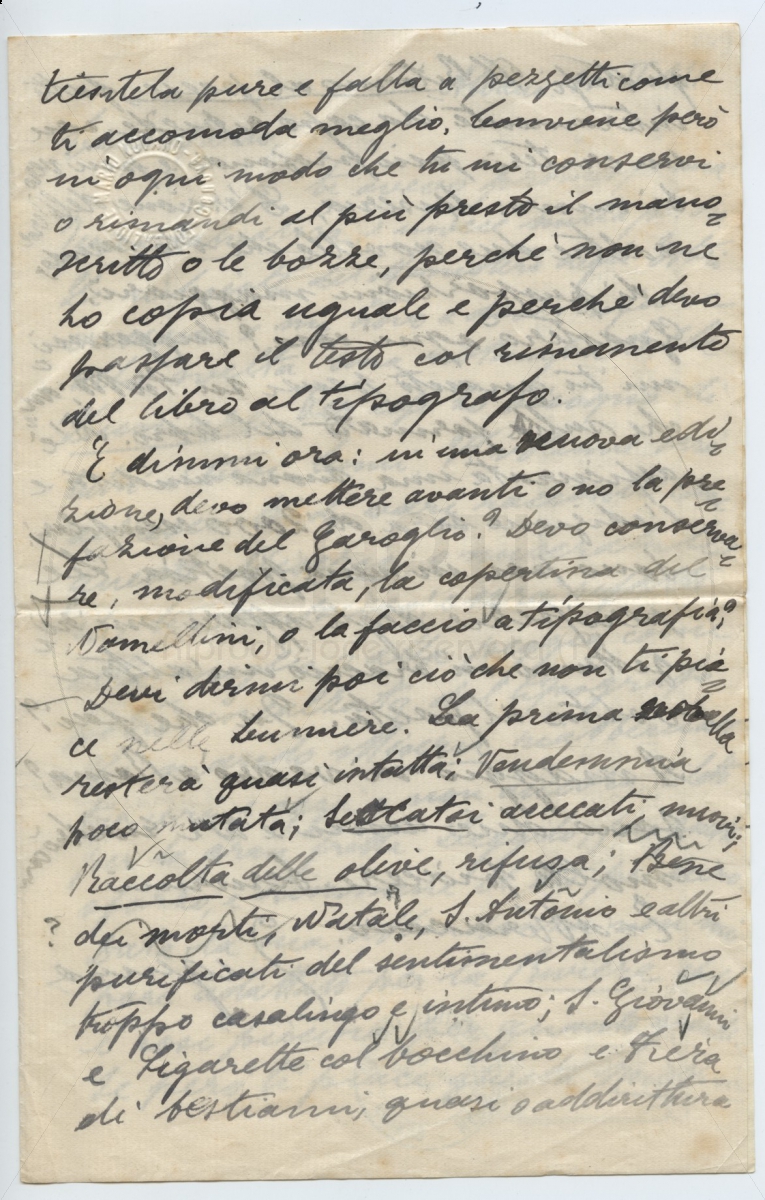 tientela pure e falla a pezzetti come
ti accomoda meglio. Conviene però
in ogni modo che tu mi conservi
o rimandi al più presto il mano=
scritto o le bozze, perchè non ne
ho copia uguale e perchè devo
passare il testo col rimanente
del libro al tipografo.
E dimmi ora: in una nuova edi=
zione, devo mettere avanti o no la pre=
fazione del Garoglio? Devo conserva=
re, modificata, la copertina del
Nomellini, o la faccio a tipografia?
Devi dirmi poi ciò che non ti pia=
ce nelle Lunnere. La prima
resterà quasi intatta; Vendemmia
poco mutata; accecati, nuovi;
Raccolta delle olive, rifusa; Bene
dei morti, Natale, S. Antonio e altri
purificati del sentimentalismo
troppo casalingo e intimo; S. Giovanni
e Sigarette col bocchino e Fiera
di bestiami, quasi o addirittura